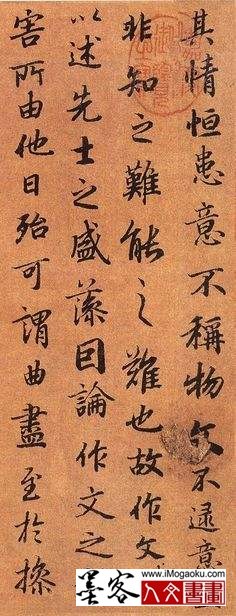 其情恒患意不稱物文不逮意
非知之難能之難也故作文
以述先士之盛藻因論作文之
害所由他日殆可謂曲盡至於操
www.iMogaoku.com
墨客 人文書畫